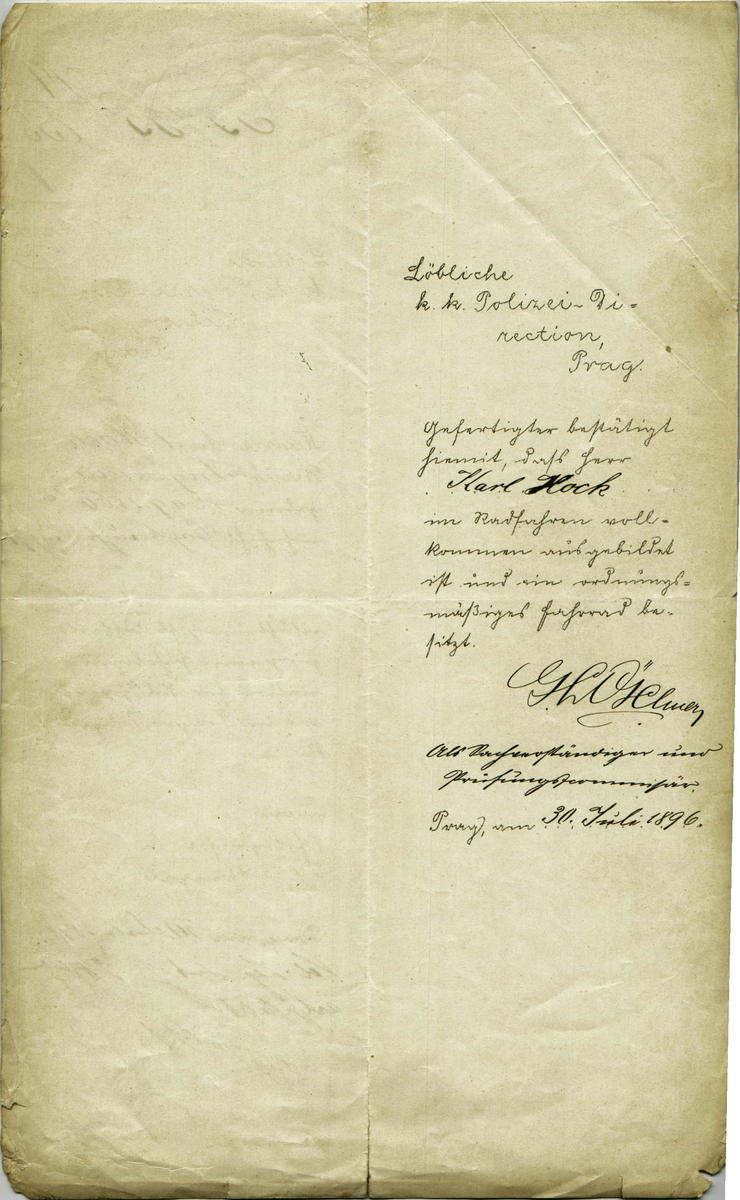 Löbliche
k. k. Polizei-Di=
rection,
Prag.
Gefertigter bestätigt
hiemit, daß Herr
Karl Hock
im Radfahren voll=
kommen ausgebildet
ist und ein ordnungs=
mäßiges Fahrrad be=
sitzt.
Als Sachverständiger und
Prüfungscommisär.
Prag, am 30. Juli 1896.